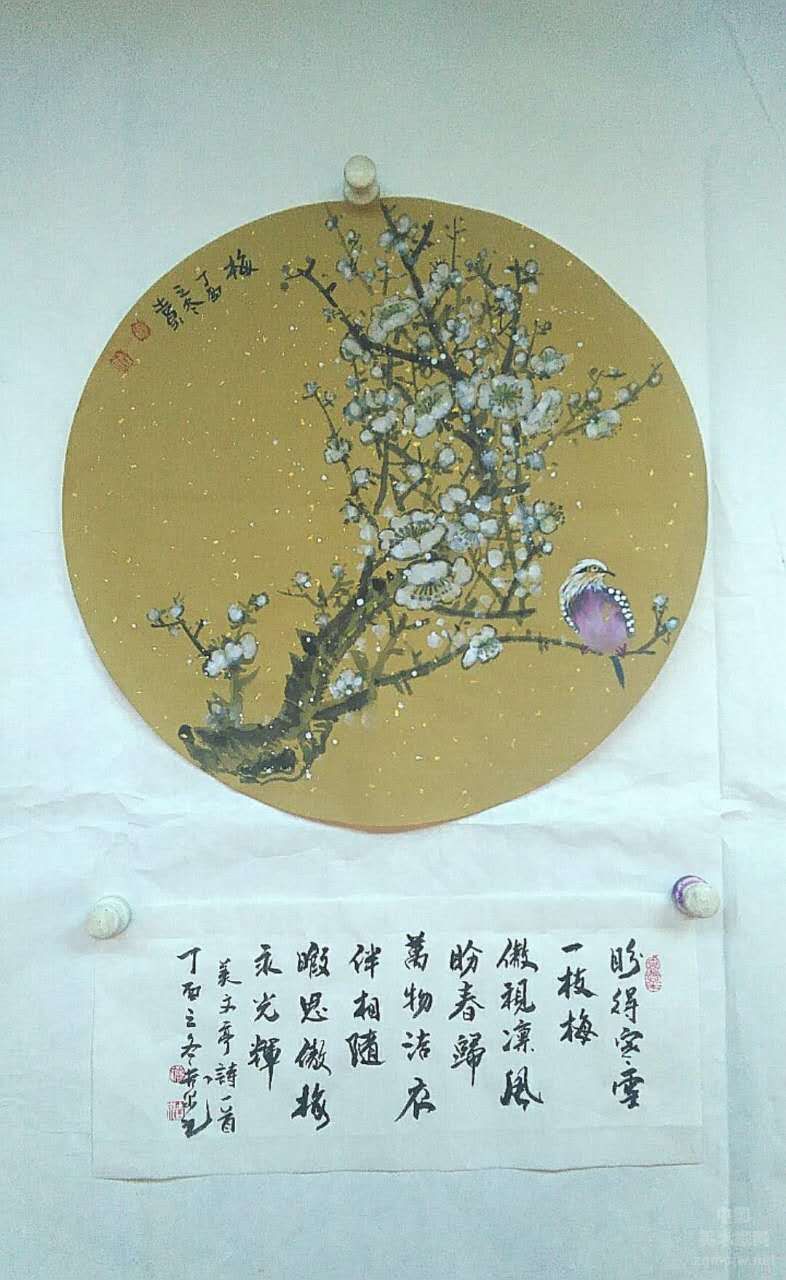 梅
丁酉
立冬
盼得寒雪
一枝梅
傲視凜風
盼春歸
萬物活衣
伴相隨
暇思傲梅
永光輝
美文亭詩一首
丁酉立冬